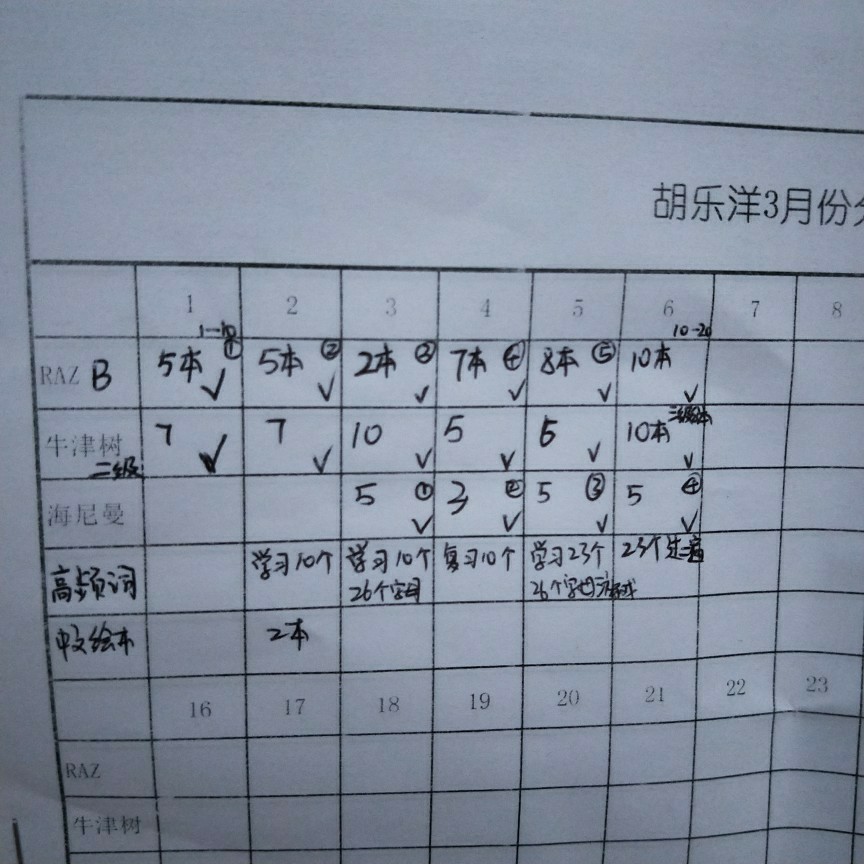 胡乐洋3月份
1 2 3 4 5 6 7 8
1-10 10-20
RAZ B 5本 ① ✓ 5本 ② ✓ 2本 ③ ✓ 7本 ④ ✓ 8本 ⑤ ✓ 10本 ✓
牛津树 二级 7 ✓ 7 ✓ 10 ✓ 5 ✓ 6 ✓ 10本 ✓
海尼曼 5 ① ✓ 3 ② ✓ 5 ③ ✓ 5 ④ ✓
高频词 学习10个 学习10个 复习10个 学习23个 23个过一遍
26个字母 26个字母游戏
中文绘本 2本
16 17 18 19 20 21 22 23
RAZ
牛津树